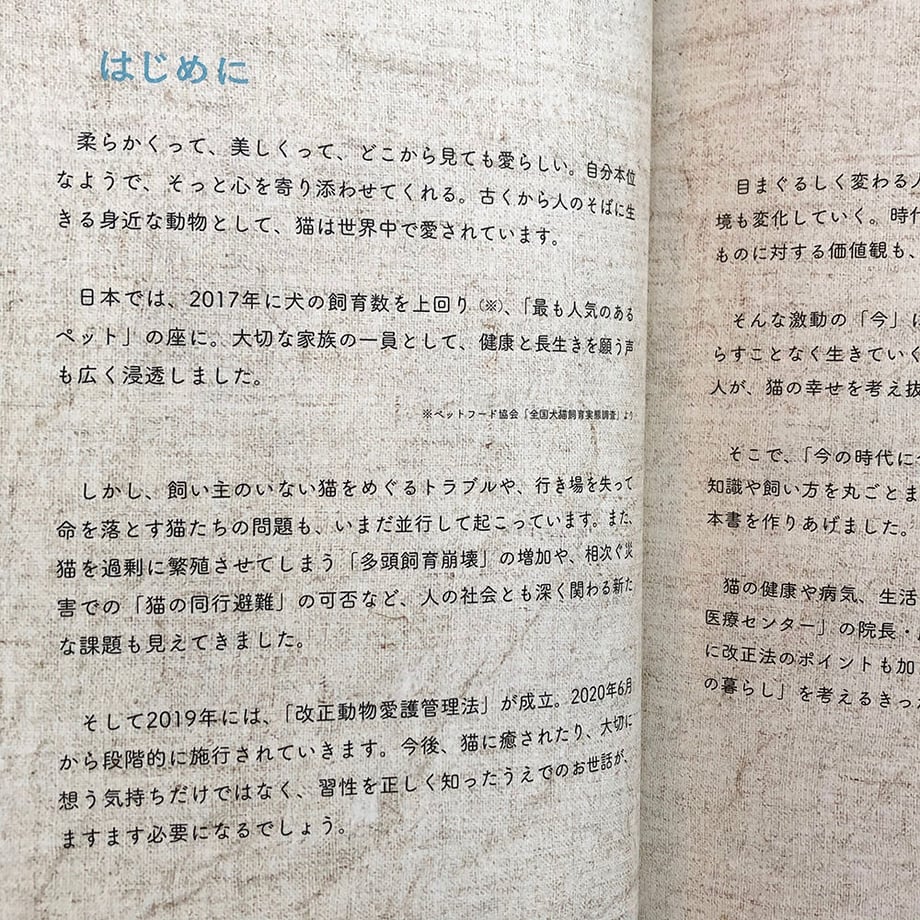 はじめに
柔らかくって、美しくって、どこから見ても愛らしい。自分本位
なようで、そっと心を寄り添わせてくれる。古くから人のそばに生
きる身近な動物として、猫は世界中で愛されています。
日本では、2017年に犬の飼育数を上回り(※)、「最も人気のある
ペット」の座に。大切な家族の一員として、健康と長生きを願う声
も広く浸透しました。
※ペットフード協会「全国犬猫飼育実態調査」より
しかし、飼い主のいない猫をめぐるトラブルや、行き場を失って
命を落とす猫たちの問題も、いまだ並行して起こっています。また、
猫を過剰に繁殖させてしまう「多頭飼育崩壊」の増加や、相次ぐ災
害での「猫の同行避難」の可否など、人の社会とも深く関わる新た
な課題も見えてきました。
そして2019年には、「改正動物愛護管理法」が成立。2020年6月
から段階的に施行されていきます。今後、猫に癒されたり、大切に
想う気持ちだけではなく、習性を正しく知ったうえでのお世話が、
ますます必要になるでしょう。
目まぐるしく変わる人
境も変化していく。時代
ものに対する価値観も、
そんな激動の「今」に
らすことなく生きていく
人が、猫の幸せを考え抜
そこで、「今の時代に
知識や飼い方を丸ごとま
本書を作りあげました。
猫の健康や病気、生活
医療センター」の院長・
に改正法のポイントも加
の暮らし」を考えるきっ